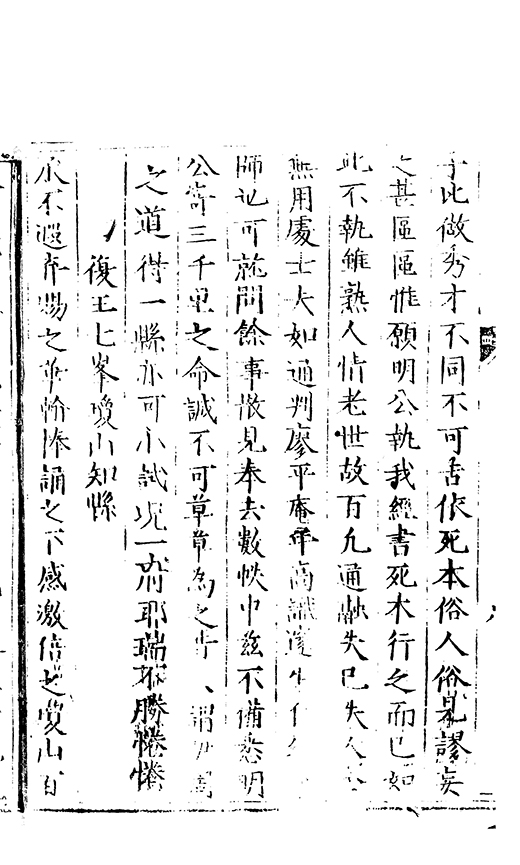 于此做秀才不同不可舍依死本俗人俗見謬妄
之甚區區惟願明公執我經書死本行之而已如
此不執雖熟人情老世故百凡通融失己失人
無用處士夫如通判廖平庵年高識邃
師也可就問餘事散見奉去數帙中茲不備悉明
公寄三千里之命誠不可草草為之
之道得一縣亦可小試况一府耶瑞不勝惓惓
復王七峯瓊山知縣
承不遐弃賜之華翰捧誦之下感激倍之瓊山百